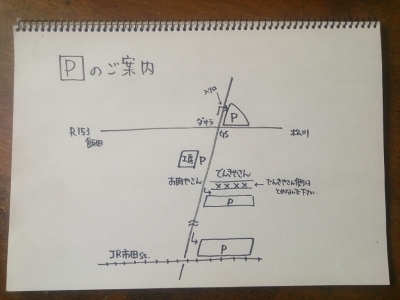 Pのご案内
入り口
P
ダサラ
R153
GS
松川
飯田
工場 P
お肉やさん
でんきやさん
××××
←でんきやさん側には
とめないで下さい。
P
P
JR市田St.